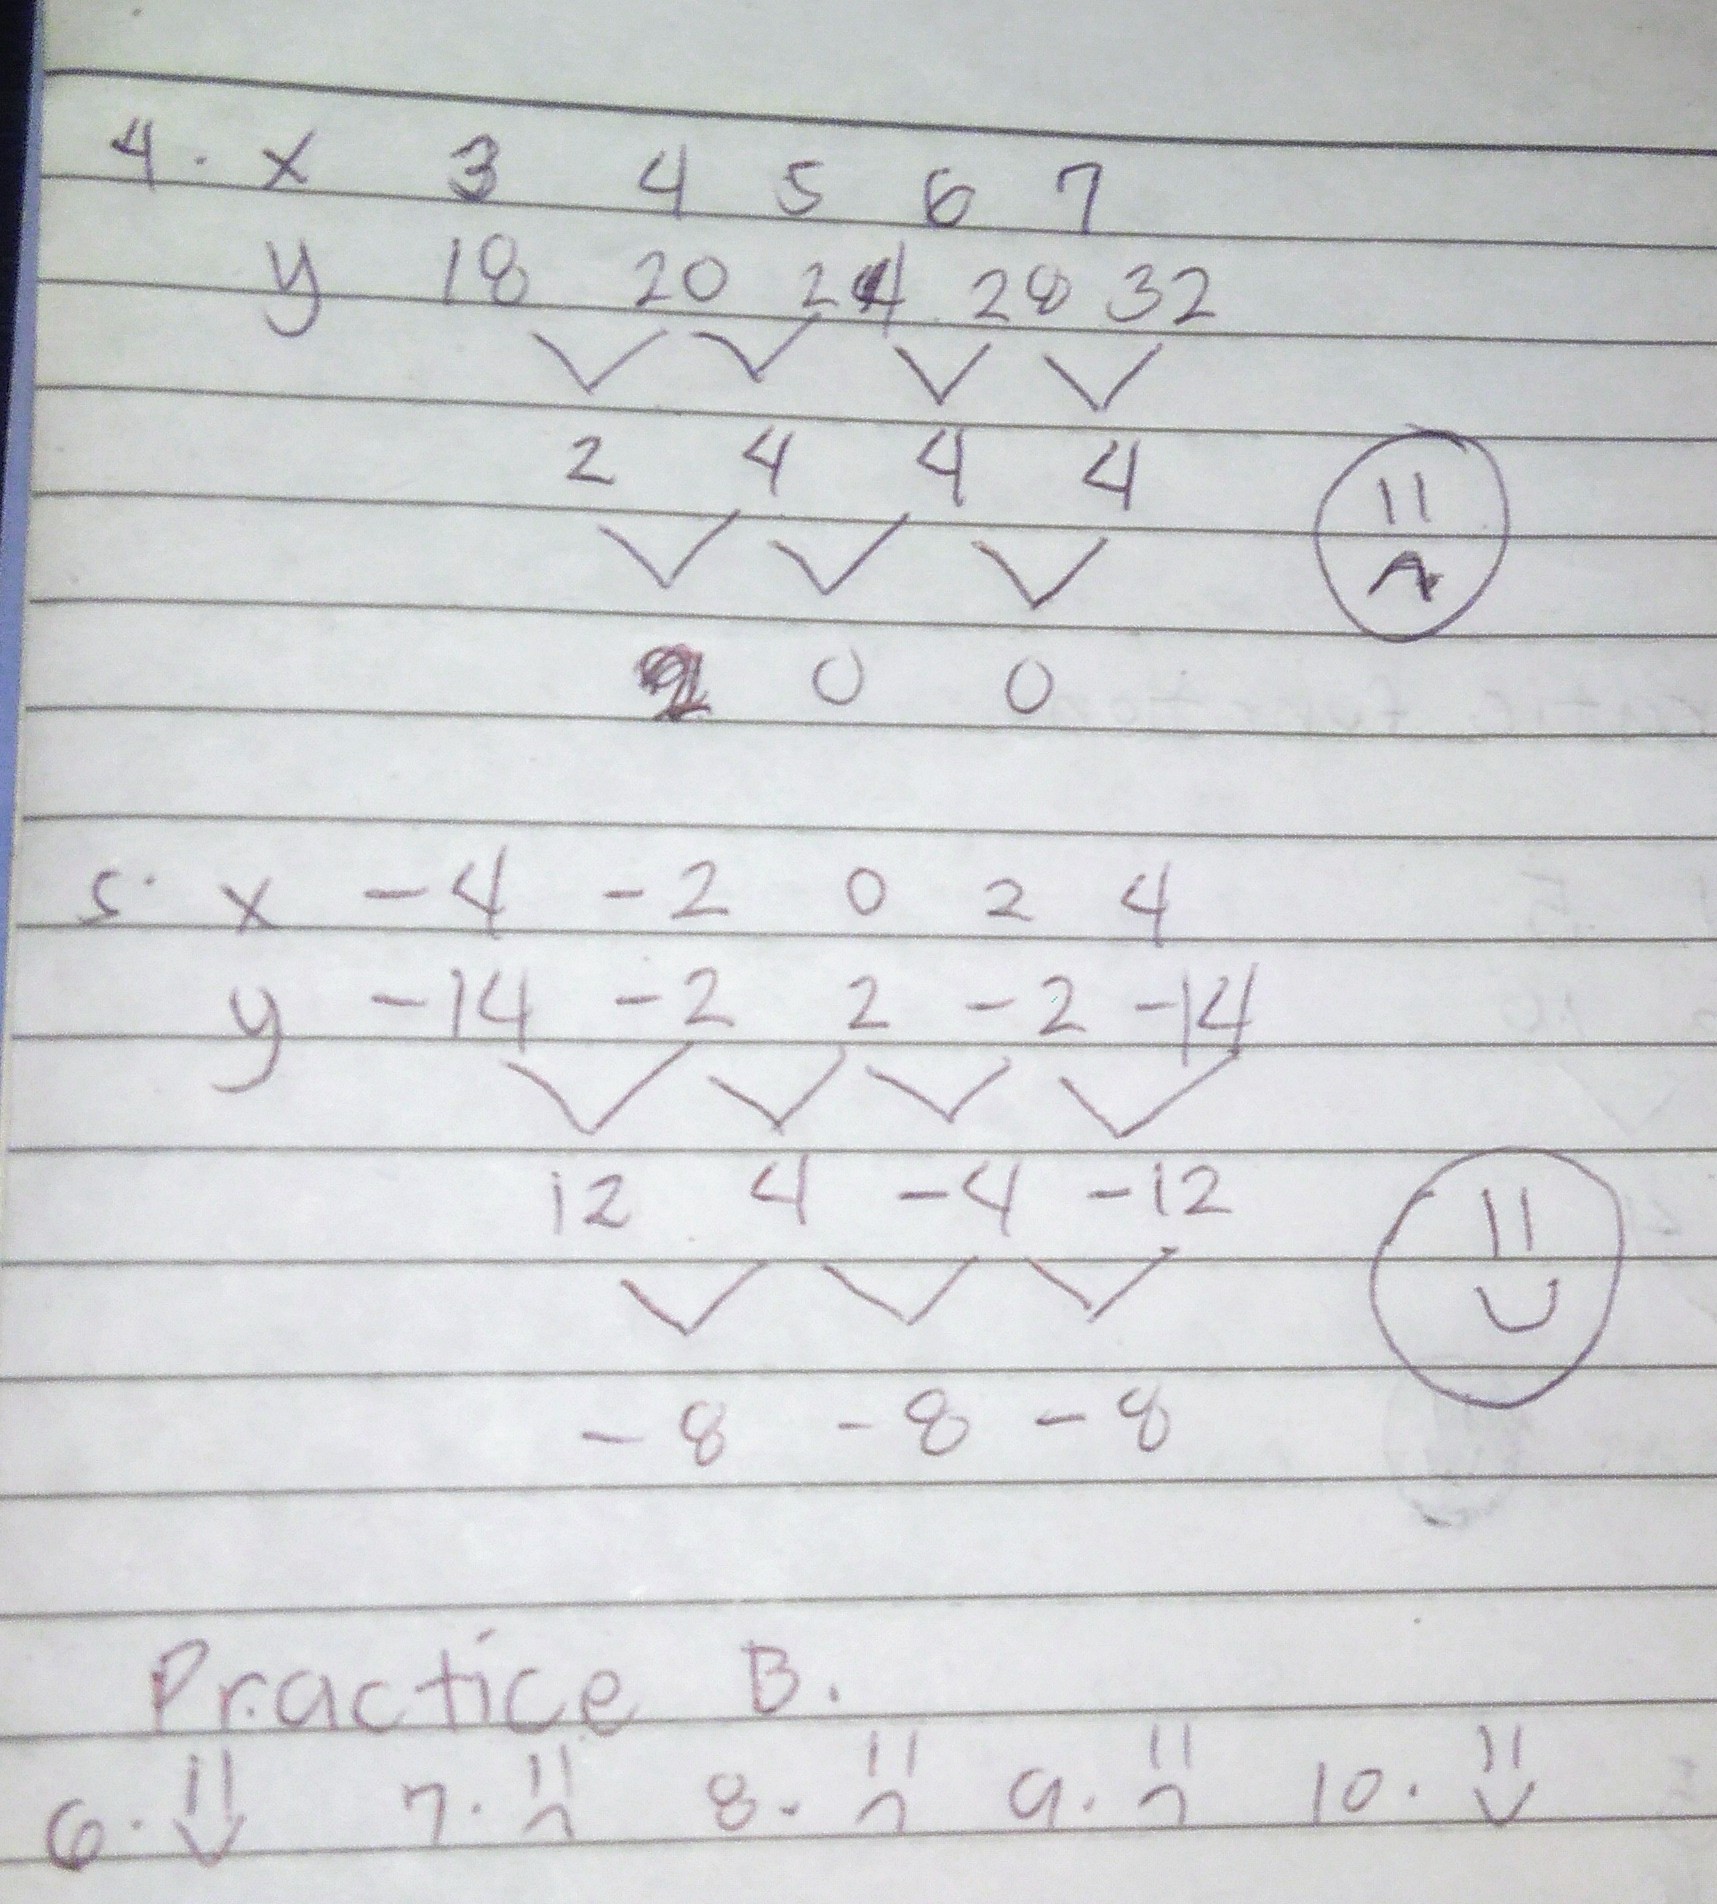 4. x 3 4 5 6 7
y 18 20 24 28 32
2 4 4 4
2 0 0
5. x -4 -2 0 2 4
y -14 -2 2 -2 -14
12 4 -4 -12
-8 -8 -8
Practice B.
6. 7. 8. 9. 10.